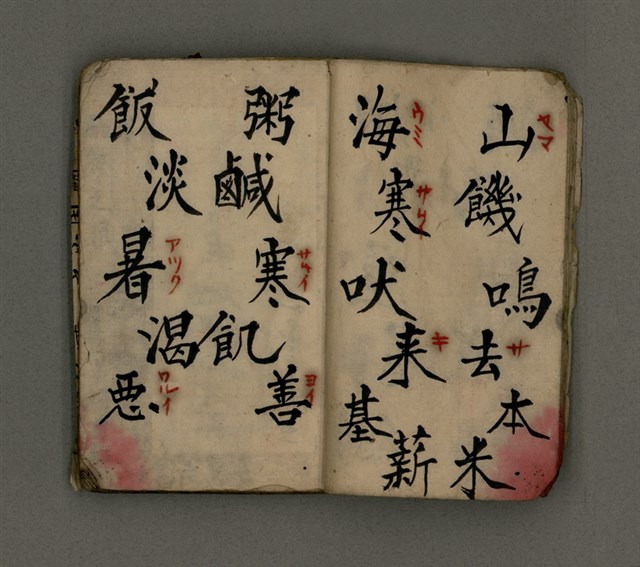 山饑鳴去本米
ヤマ サ
海寒吠来基薪
ウミ サムイ キ
粥鹹寒飢善
サムイ ヨイ
飯淡暑渴悪
アツク ワルイ